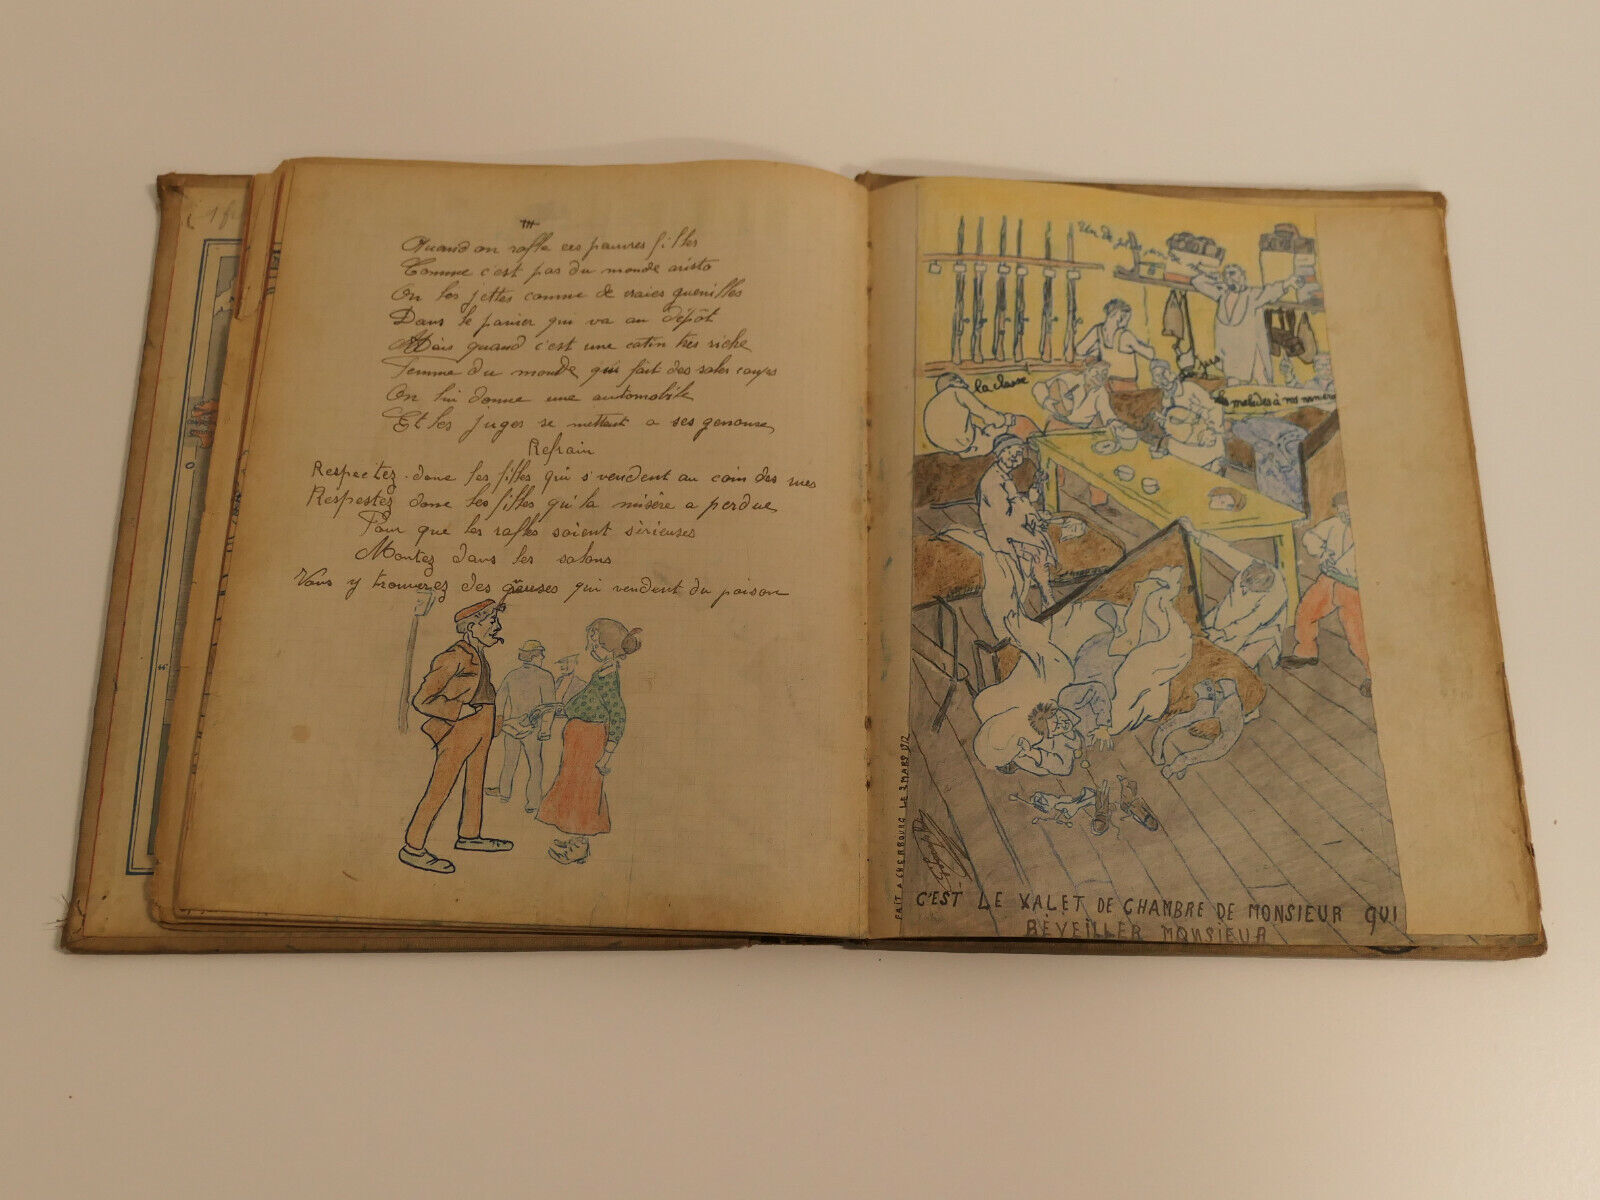 III
Quand on rafle ces pauvres filles
Comme c'est pas du monde aristo
On les jettes comme de vraies guenilles
Dans le panier qui va au dépôt
Mais quand c'est une catin très riche
Femme du monde qui fait des sales coups
On lui donne une automobile
Et les juges se mettent a ses genoux
Refrain
Respectez donc les filles qui s'vendent au coin des rues
Respestez donc les filles qu'la misère a perdue
Pour que les rafles soient sérieuses
Montez dans les salons
Vous y trouverez des gueuses qui vendent du poison
Un de plus
la classe
jus
les malades à vos numéros
FAIT A CHERBOURG LE 2 MARS 1912
C'EST LE VALET DE CHAMBRE DE MONSIEUR QUI
RÉVEILLER MONSIEUR